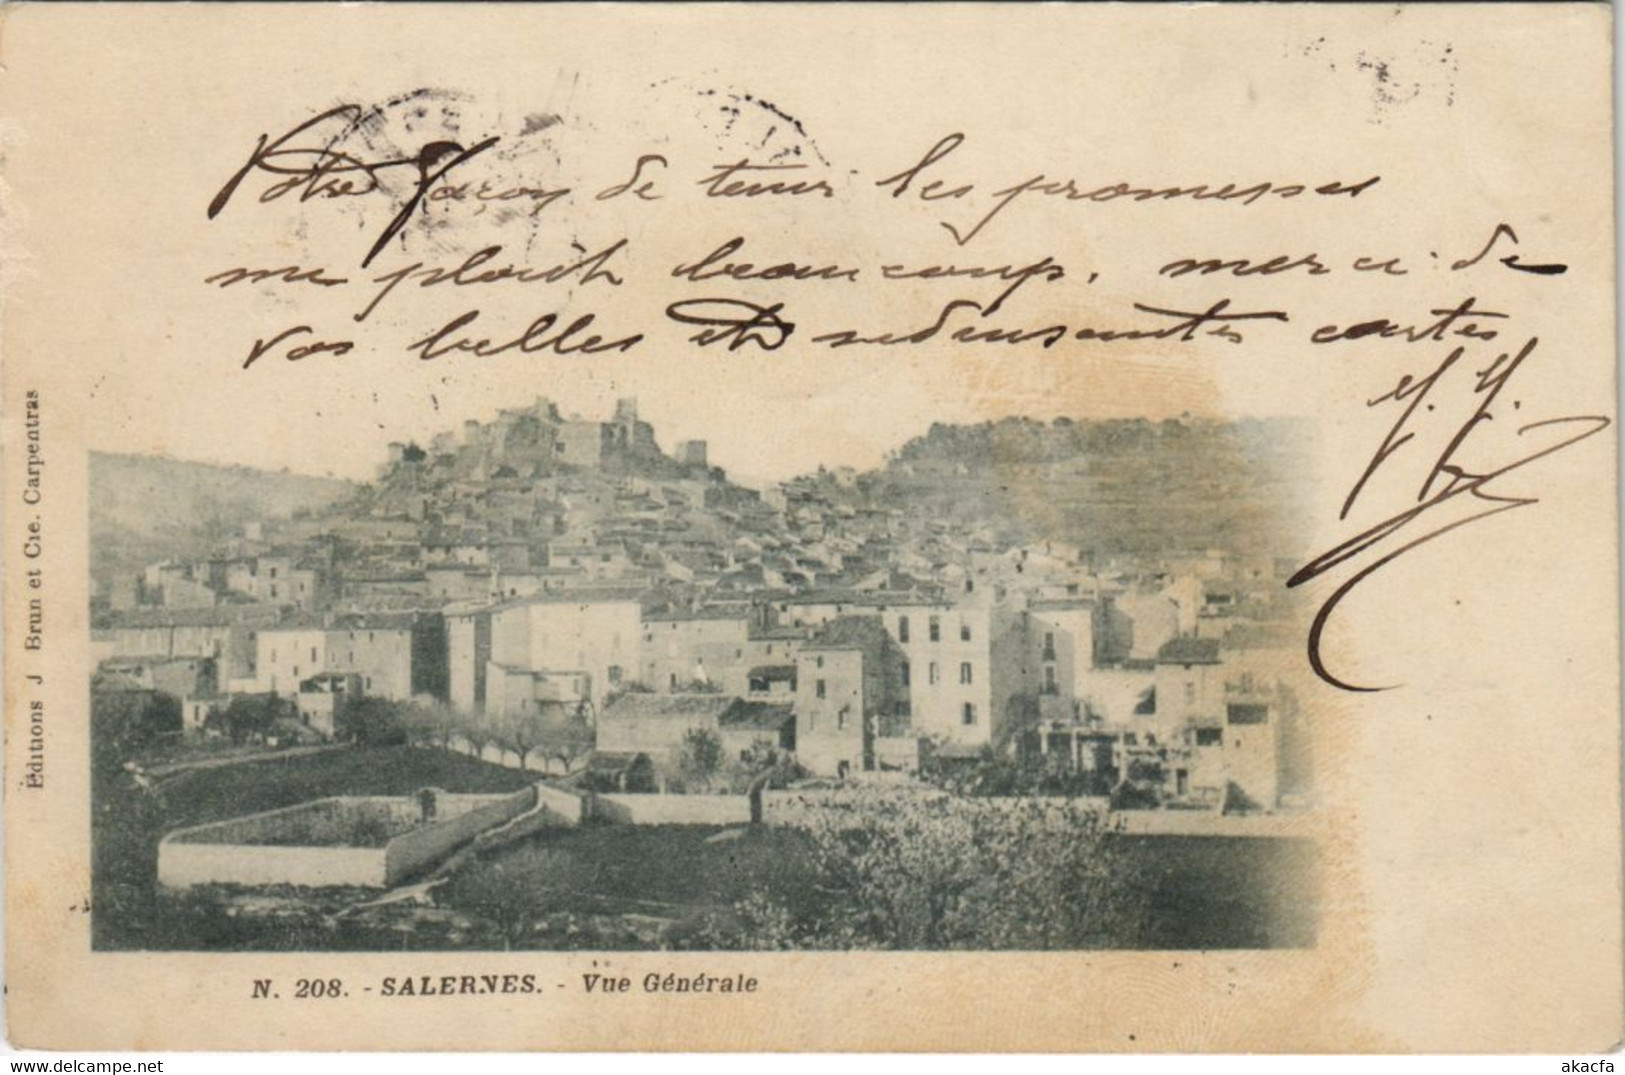 Votre façon de tenir les promesses
me plaît beaucoup. merci de
vos belles et séduisantes cartes
Editions J Brun et Cie. Carpentras
N. 208. - SALERNES. - Vue Générale
akacfa